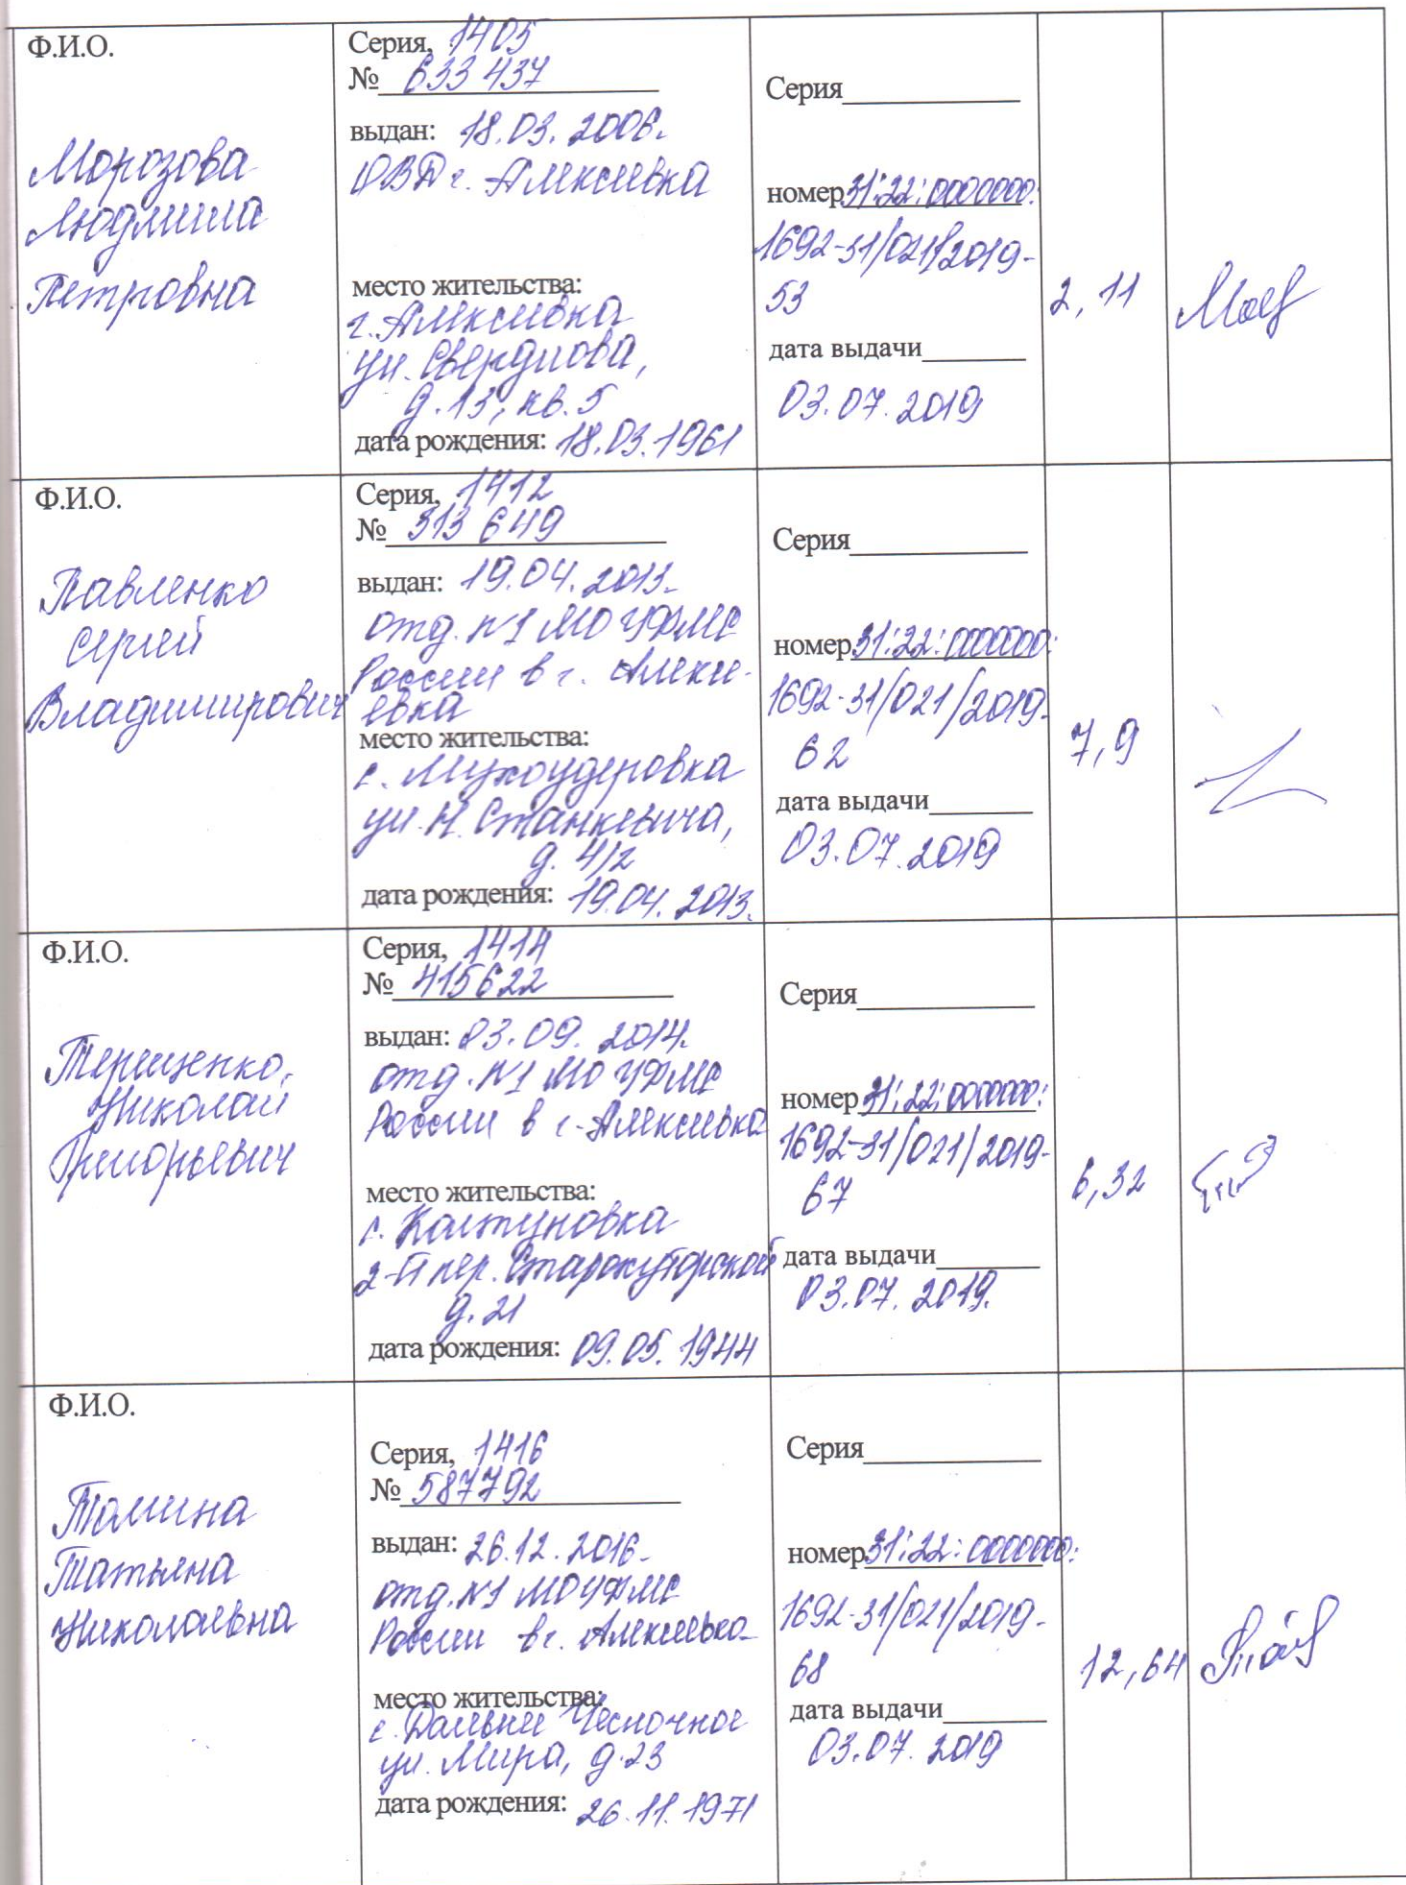 Ф.И.О.
Морозова
Людмила
Петровна
Серия, 1405
№ 633 437
выдан: 18.03.2006.
ОВД г. Алексеевка
место жительства:
г. Алексеевка
ул. Свердлова,
д. 13, кв. 5
дата рождения: 18.03.1961
Серия
номер 31:22:0000000:
1692-31/021/2019-
53
дата выдачи
03.07.2019
2,11
Ф.И.О.
Павленко
Сергей
Владимирович
Серия, 1412
№ 313 649
выдан: 19.04.2013.
отд. №1 МО УФМС
России в г. Алексе-
евка
место жительства:
с. Мухоудеровка
ул. Н. Станкевича,
д. 4/2
дата рождения: 19.04.2013.
Серия
номер 31:22:0000000:
1692-31/021/2019-
62
дата выдачи
03.07.2019
7,9
Ф.И.О.
Терещенко
Николай
Григорьевич
Серия, 1414
№ 415622
выдан: 03.09.2014.
отд. №1 МО УФМС
России в г. Алексеевка
место жительства:
с. Колтуновка
2-й пер. Старохуторской
д. 21
дата рождения: 09.05.1944
Серия
номер 31:22:0000000:
1692-31/021/2019-
67
дата выдачи
03.07.2019.
6,32
Ф.И.О.
Томина
Татьяна
Николаевна
Серия, 1416
№ 587792
выдан: 26.12.2016.
отд. №1 МО УФМС
России в г. Алексеевка
место жительства:
с. Дальнее Чесночное
ул. Мира, д. 23
дата рождения: 26.11.1971
Серия
номер 31:22:0000000:
1692-31/021/2019-
68
дата выдачи
03.07.2019
12,64